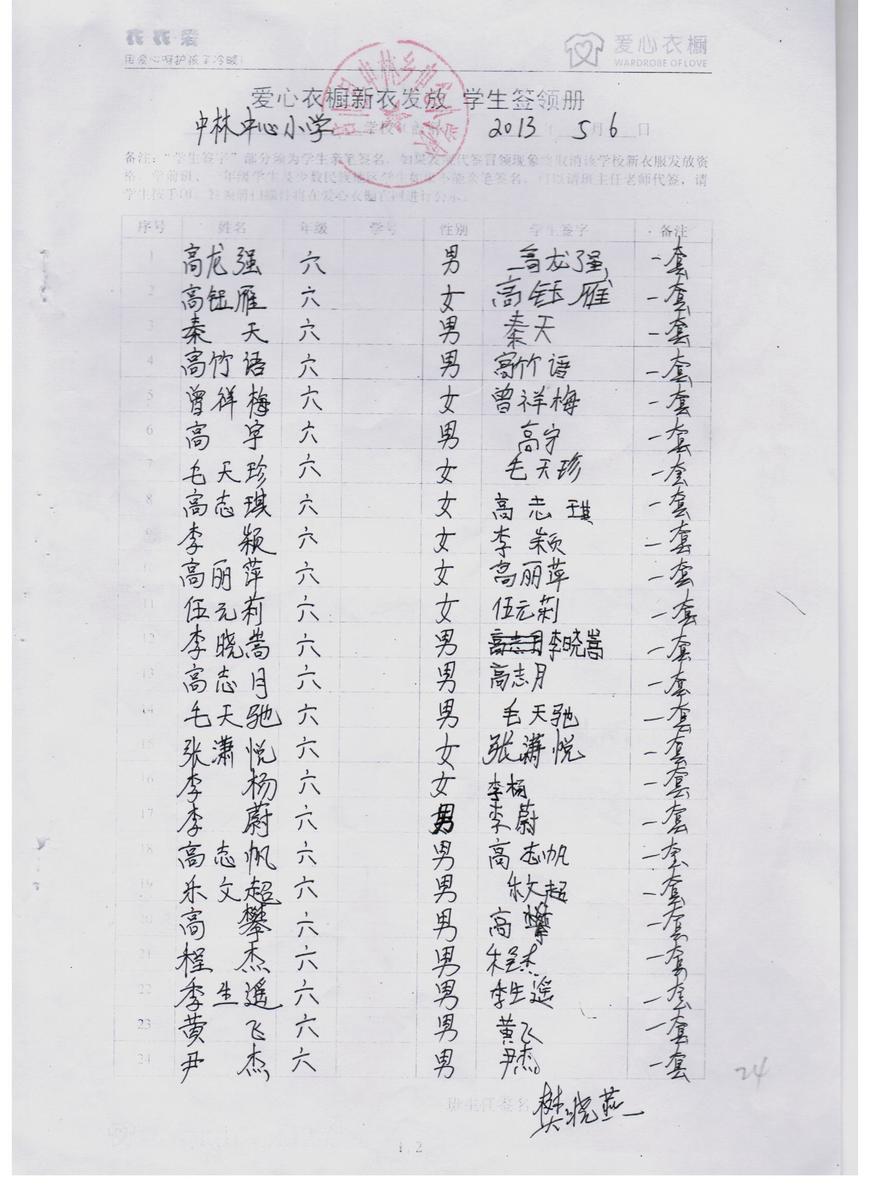 衣衣·爱
用爱心呵护孩子冷暖!
爱心衣橱
WARDROBE OF LOVE
爱心衣橱新衣发放 学生签领册
中林中心小学 学校 2013 年 5 月 6 日
备注:“学生签字”部分须为学生亲笔签名,如果发现代签冒领现象将取消该学校新衣服发放资
格。学前班、一年级学生及少数民族地区学生如果不能亲笔签名,可以请班主任老师代签,请
学生按手印。
序号 姓名 年级 学号 性别 学生签字 备注
1 高龙强 六 男 高龙强 一套
2 高钰雁 六 女 高钰雁 一套
3 秦天 六 男 秦天 一套
4 高竹语 六 男 高竹语 一套
5 曾祥梅 六 女 曾祥梅 一套
6 高宇 六 男 高宇 一套
7 毛天珍 六 女 毛天珍 一套
8 高志琪 六 女 高志琪 一套
9 李颖 六 女 李颖 一套
10 高丽萍 六 女 高丽萍 一套
11 伍元莉 六 女 伍元莉 一套
12 李晓嵩 六 男 高志月 李晓嵩 一套
13 高志月 六 男 高志月 一套
14 毛天驰 六 男 毛天驰 一套
15 张潇悦 六 女 张潇悦 一套
16 李杨 六 女 李杨 一套
17 李蔚 六 男 李蔚 一套
18 高志帆 六 男 高志帆 一套
19 乐文超 六 男 文超 一套
20 高攀 六 男 高攀 一套
21 程杰 六 男 程杰 一套
22 李生遥 六 男 李生遥 一套
23 黄飞 六 男 黄飞 一套
24 尹杰 六 男 尹杰 一套
24
班主任签名 樊晓燕
1 2